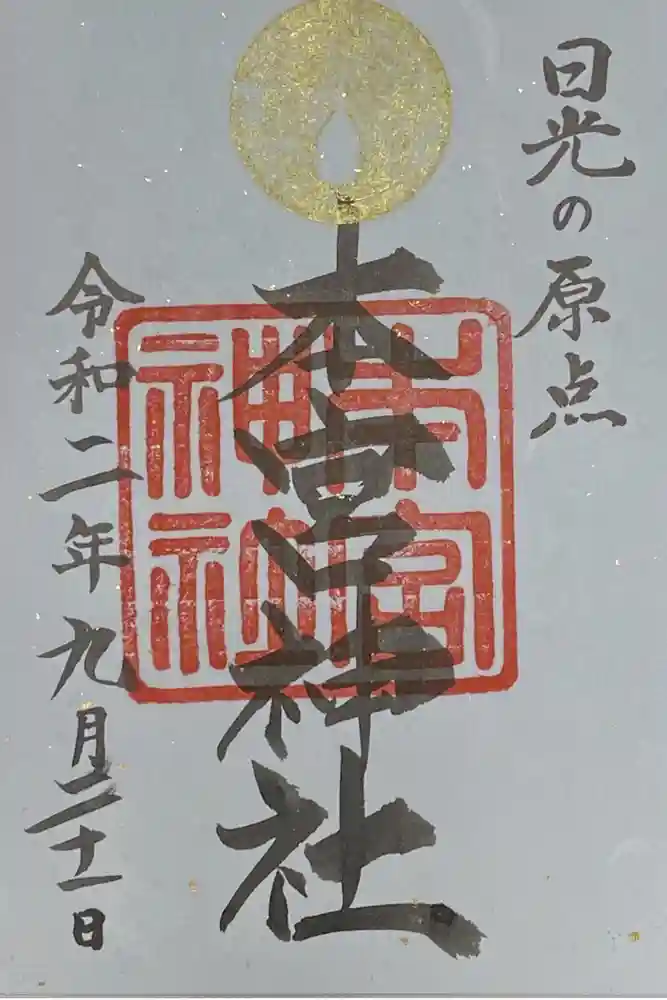 日光の原点
本宮神社
本宮神社
令和二年九月二十一日